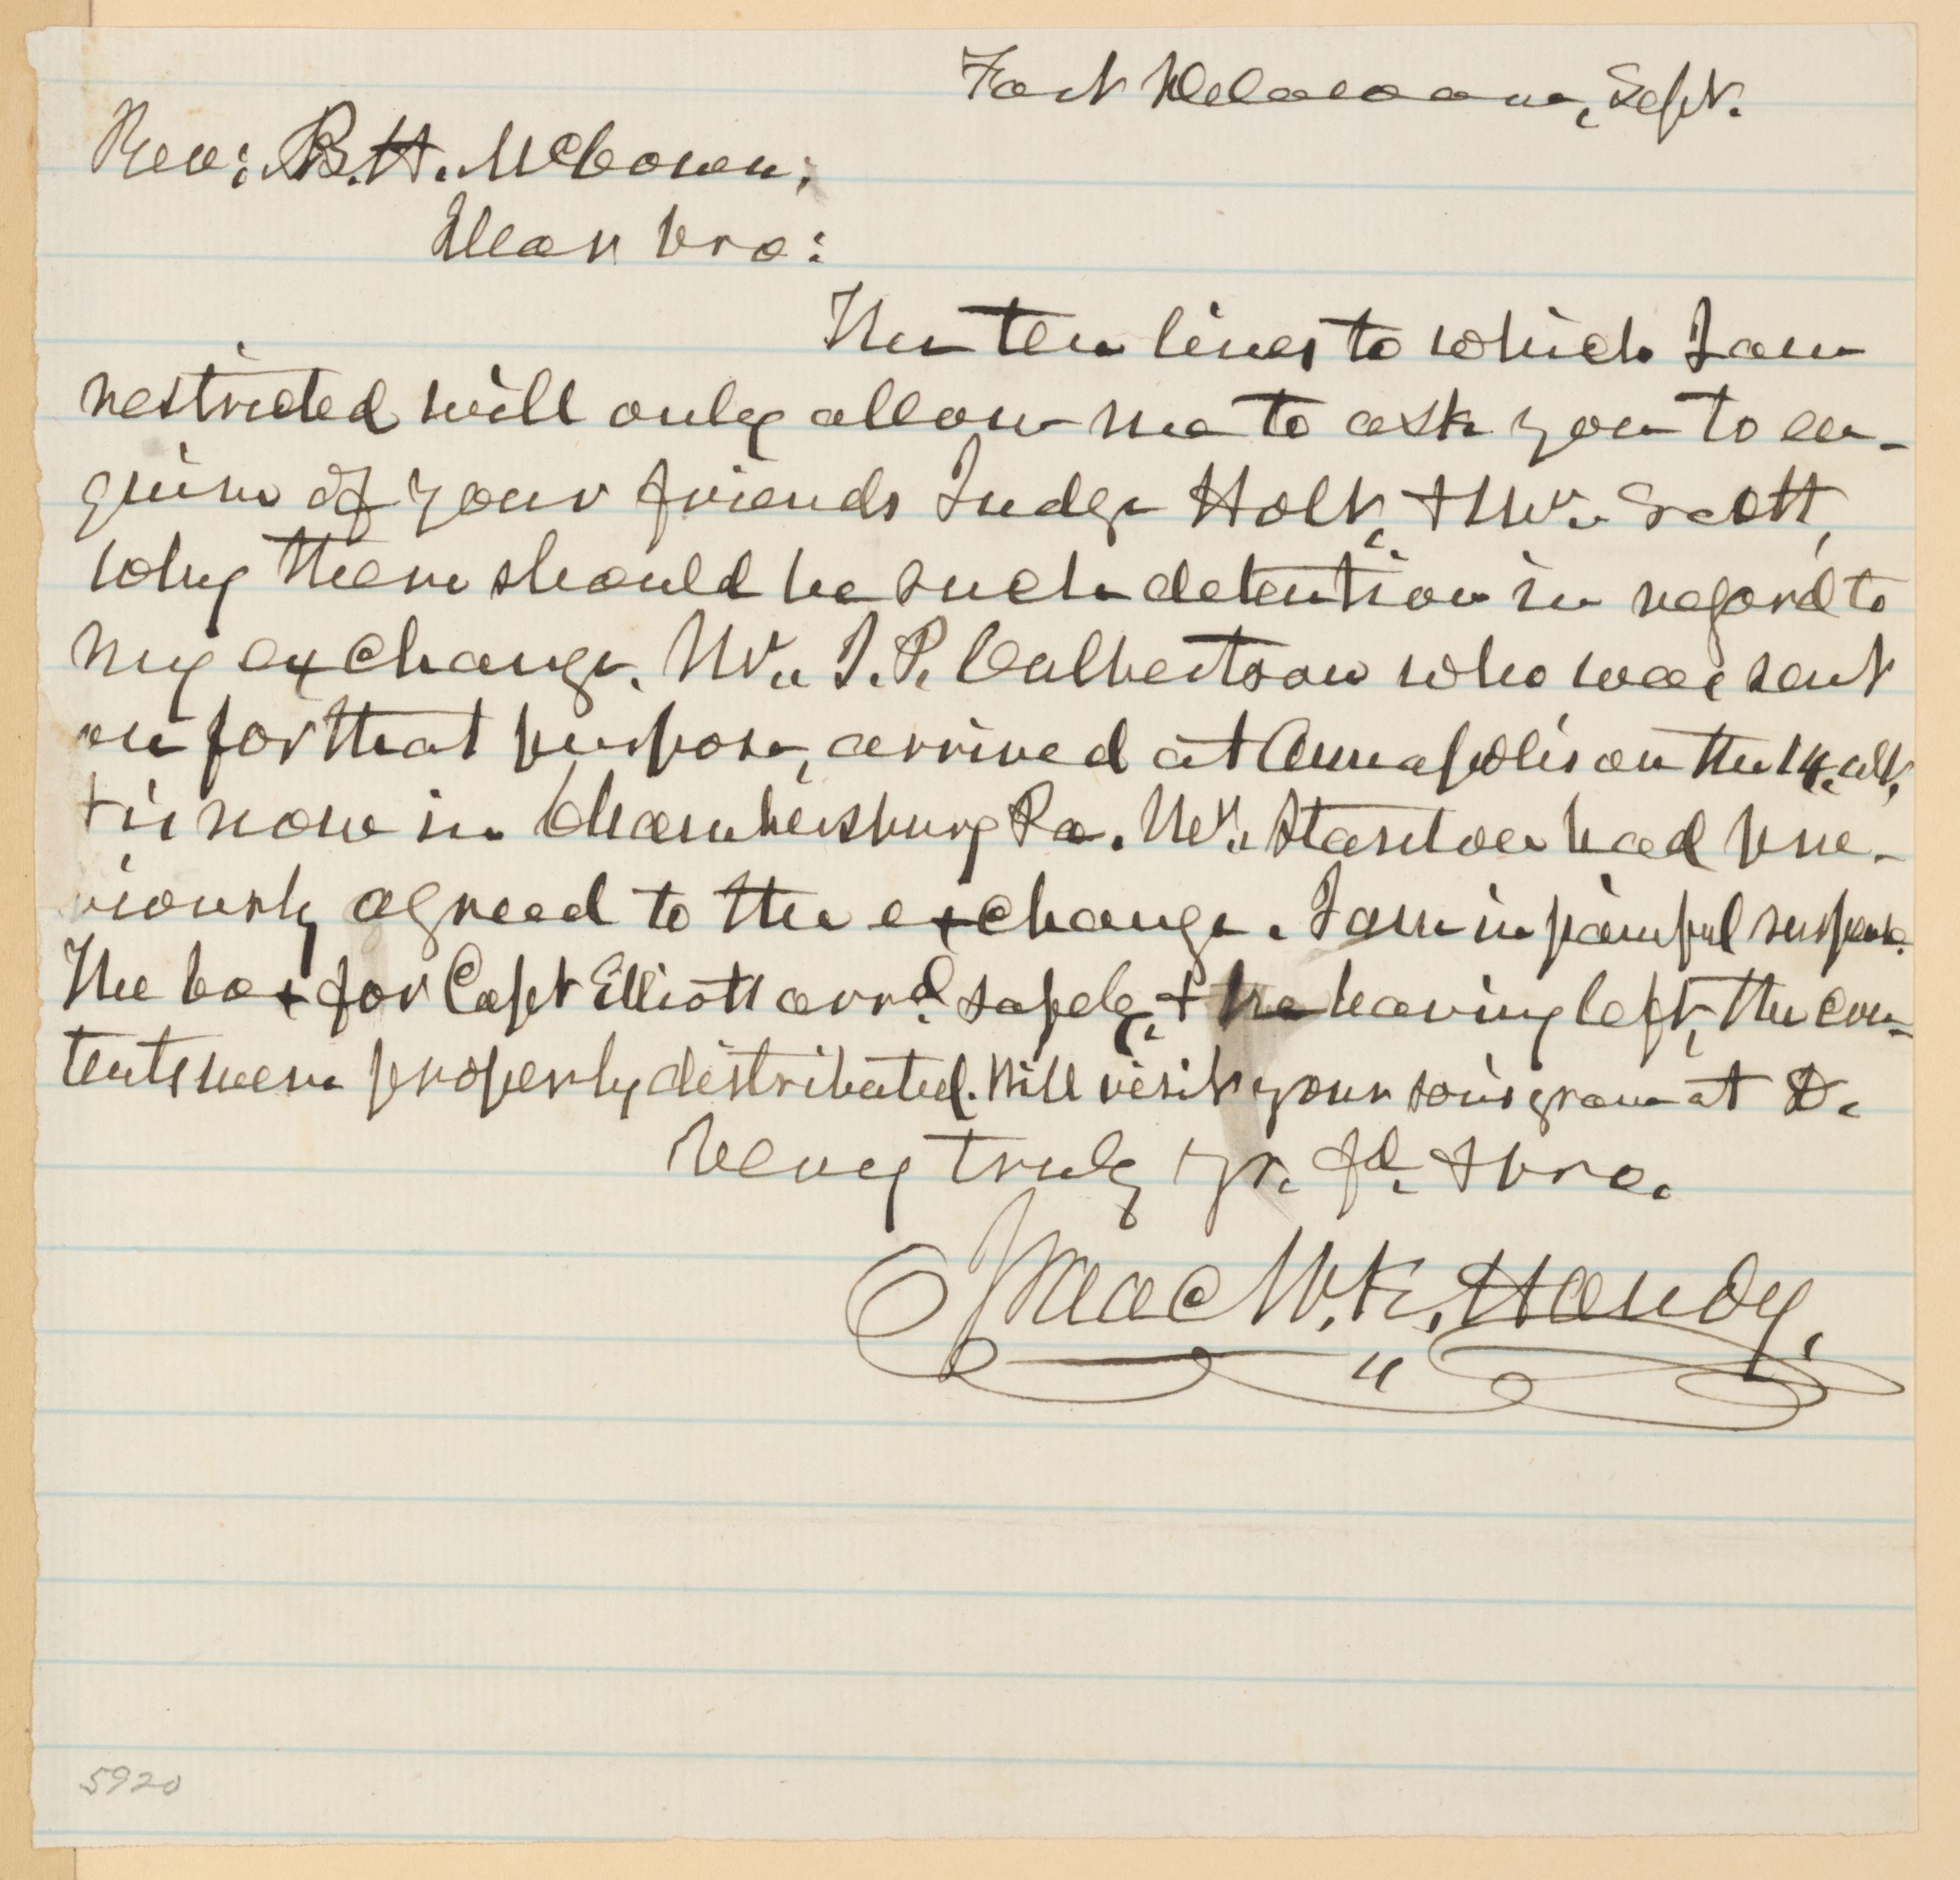 Fort Delaware, Sept.
Rev: B. H. McCown;
Dear bro:
The ten lines to which I am
restricted will only allow me to ask you to en-
quire of your friends Judge Holt, & Mr. Scott,
why there should be such detention in regard to
my exchange. Mr. J. P. Culbertson who was sent
on for that purpose, arrived at Annapolis on the 14. ult,
& is now in Chambersburg Pa. Mr. Stanton had pre-
viously agreed to the exchange. I am in painful suspense.
The box for Capt Elliott arrd. safely, & he having left, the con-
tents were properly distributed. Will visit your son's grave at D.
Very truly yr. fd. & bro.
Isaac W. K. Handy.
5920